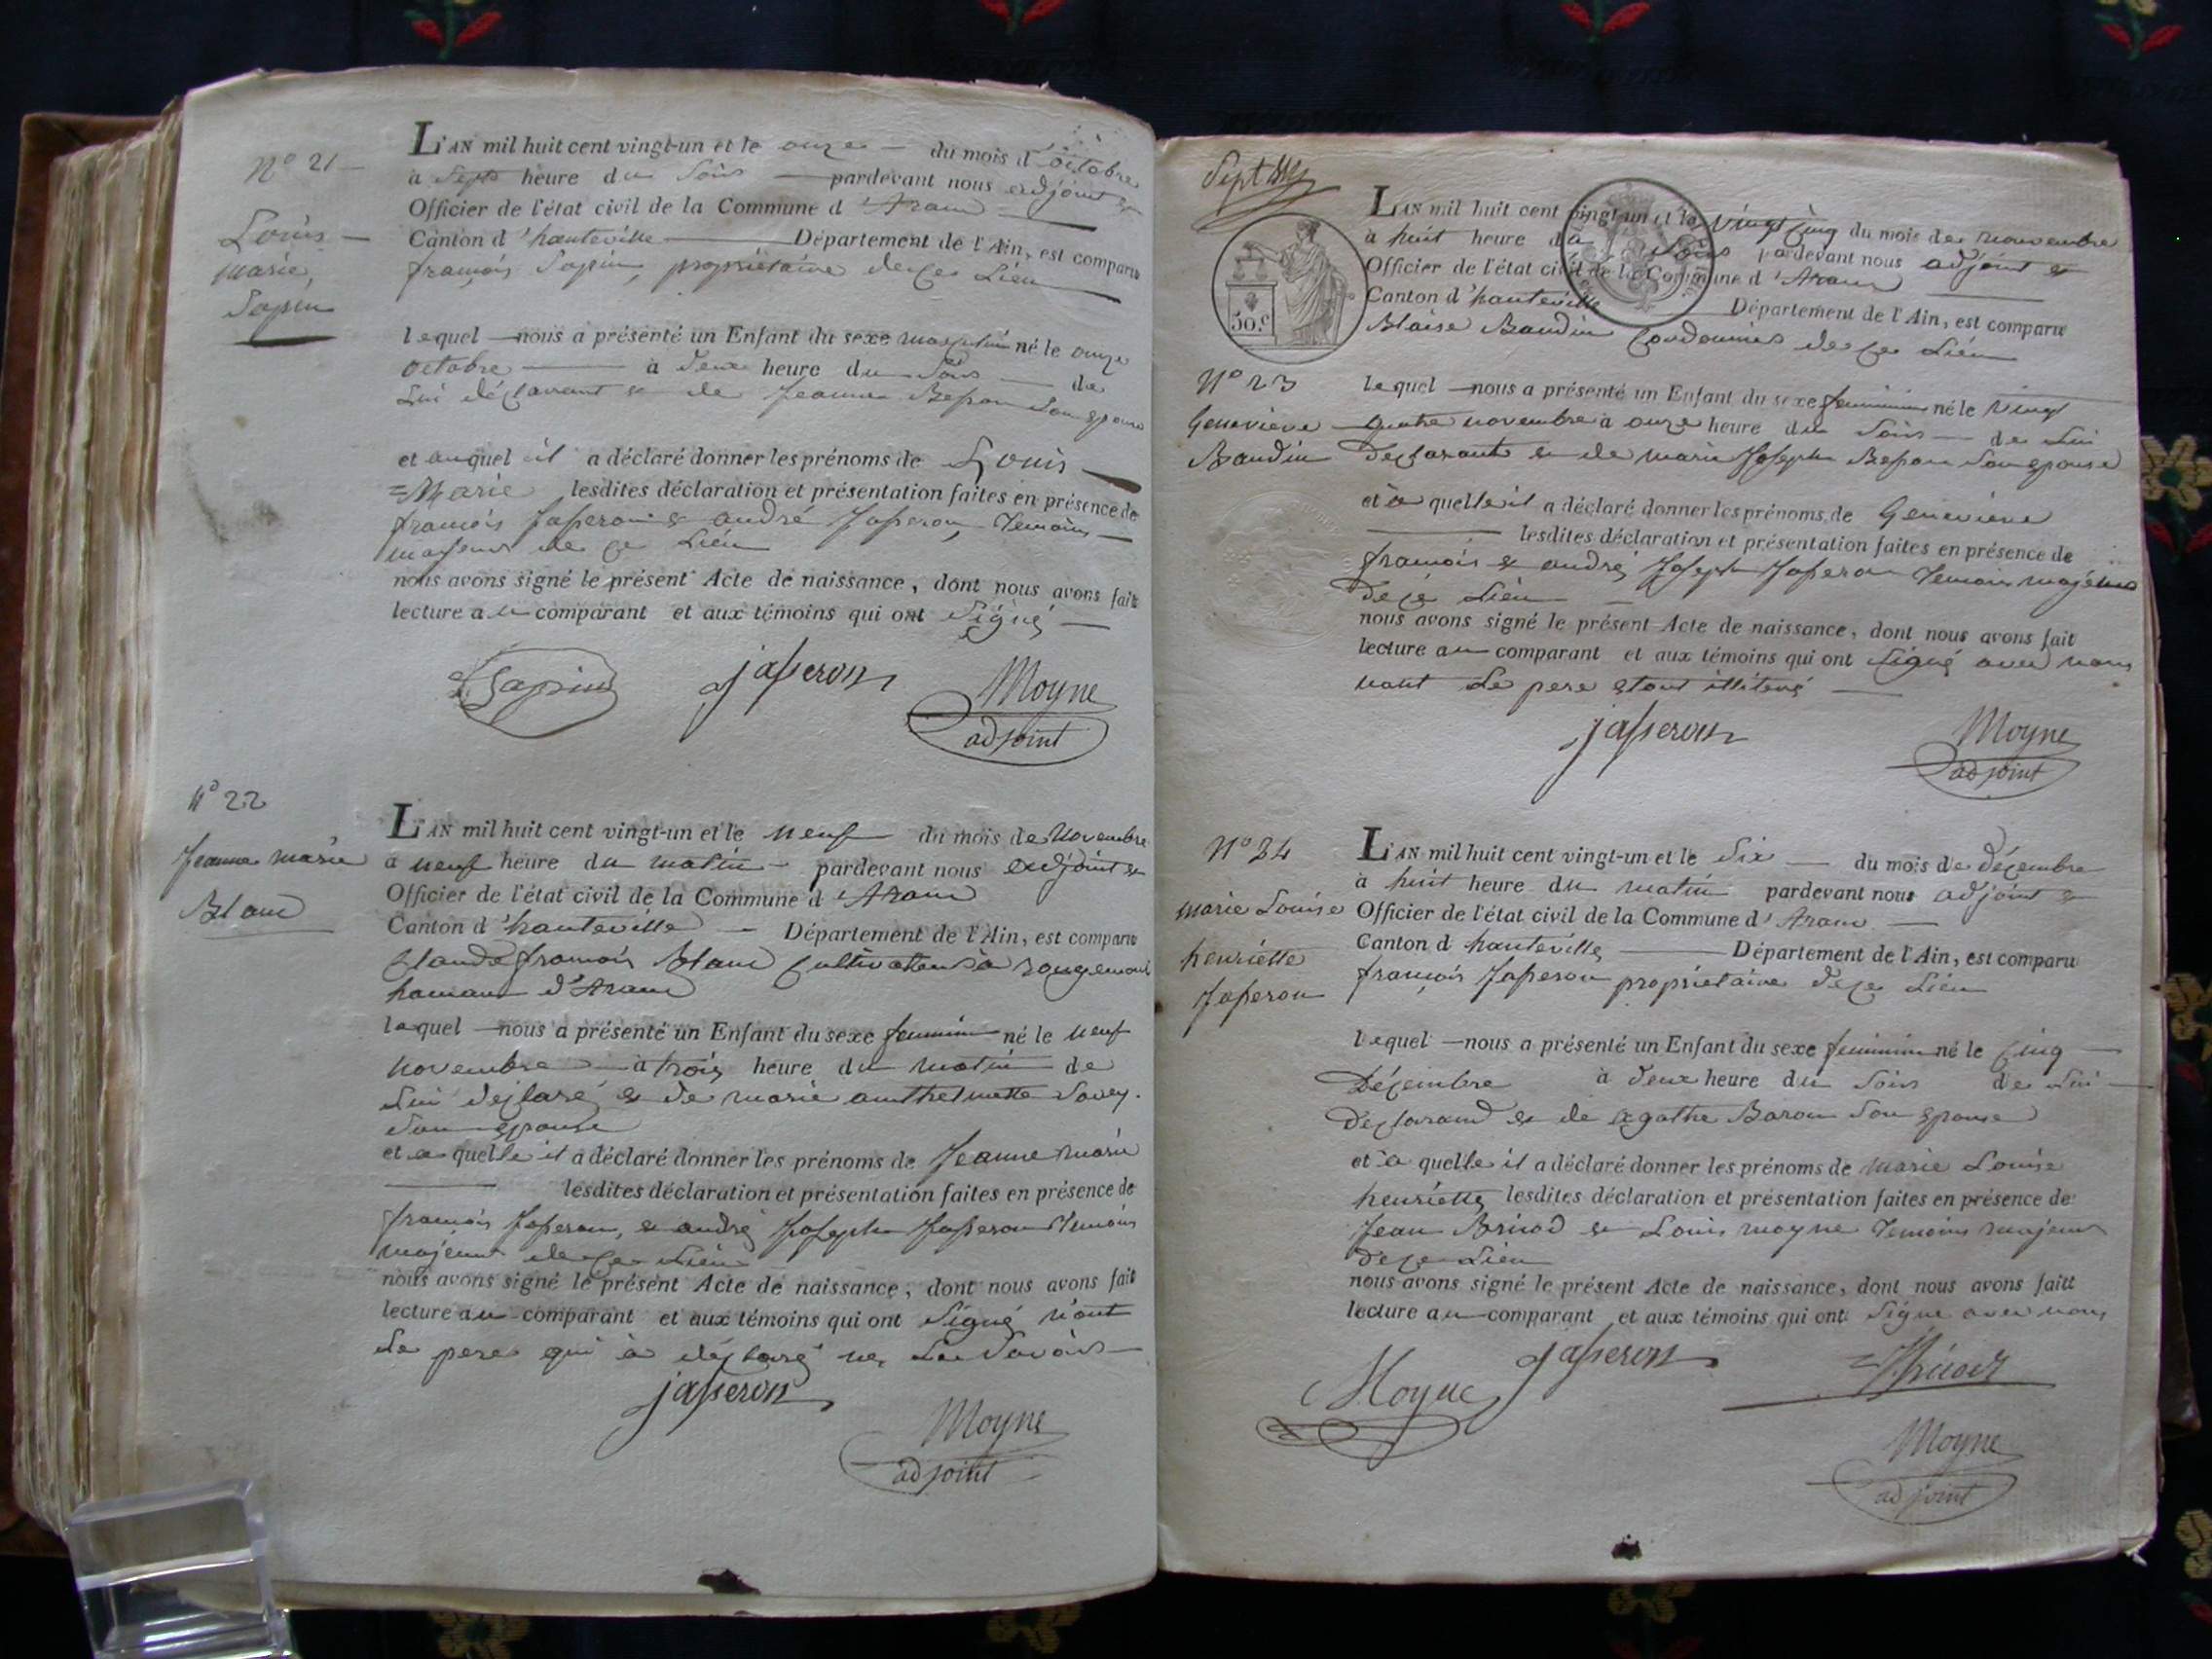 N° 21
Louis
marie,
Sapin
L'AN mil huit cent vingt-un et le onze du mois d'octobre
à Sept heure du Soir pardevant nous adjoint et
Officier de l'état civil de la Commune d'Aranc
Canton d'hauteville Département de l'Ain, est comparu
françois Sapin, propriétaire de ce Lieu
lequel nous a présenté un Enfant du sexe masculin né le onze
octobre à deux heure du Soir de
Lui déclarant et de Jeanne Besson Son epouse
et auquel il a déclaré donner les prénoms de Louis
=Marie lesdites déclaration et présentation faites en présence de
françois Jasseron et andré Jasseron, Temoins
majeurs de ce Lieu
nous avons signé le présent Acte de naissance, dont nous avons fait
lecture au comparant et aux témoins qui ont Signé
Sapin jasseron Moyne
adjoint
N° 22
Jeanne marie
Blanc
L'AN mil huit cent vingt-un et le neuf du mois de Novembre
à neuf heure du matin pardevant nous adjoint et
Officier de l'état civil de la Commune d'Aranc
Canton d'hauteville Département de l'Ain, est comparu
Claude françois Blanc Cultivateur à rougemont
hameau d'Aranc
lequel nous a présenté un Enfant du sexe feminin né le neuf
novembre à trois heure du matin de
Lui déclaré et de marie anthelmette Savey
Son epouse
et a quelle il a déclaré donner les prénoms de Jeanne marie
lesdites déclaration et présentation faites en présence de
françois Jasseron, et andré Joseph Jasseron Temoins
majeurs de ce Lieu
nous avons signé le présent Acte de naissance, dont nous avons fait
lecture au comparant et aux témoins qui ont Signé non
Le pere qui à déclaré ne Le Savoir
jasseron
Moyne
adjoint
50.c
N° 23
Genevieve
Baudin
L'AN mil huit cent vingt-un et le vingt Cinq du mois de novembre
à huit heure du Soir pardevant nous adjoint et
Officier de l'état civil de la Commune d'Aranc
Canton d'hauteville Département de l'Ain, est comparu
Blaise Baudin Cordonnier de ce Lieu
lequel nous a présenté un Enfant du sexe feminin né le vingt
quatre novembre à onze heure du Soir de Lui
Declarant et de marie Joseph Besson Son epouse
et a quelle il a déclaré donner les prénoms de Genevieve
lesdites déclaration et présentation faites en présence de
françois et andré Joseph Jasseron Temoins majeurs
de ce Lieu
nous avons signé le présent Acte de naissance, dont nous avons fait
lecture au comparant et aux témoins qui ont Signé avec nous
non Le pere etant illiteré
jasseron Moyne
adjoint
N° 24
marie Louise
henriette
Jasseron
L'AN mil huit cent vingt-un et le Six du mois de décembre
à huit heure du matin pardevant nous adjoint et
Officier de l'état civil de la Commune d'Aranc
Canton d hauteville Département de l'Ain, est comparu
françois Jasseron propriétaire de ce Lieu
lequel nous a présenté un Enfant du sexe feminin né le Cinq
Décembre à deux heure du Soir de Lui
Declarand et de agathe Baron Son epouse
et a quelle il a déclaré donner les prénoms de marie Louise
henriette lesdites déclaration et présentation faites en présence de
Jean Brinod et Louis moyne Temoins majeurs
de ce Lieu
nous avons signé le présent Acte de naissance, dont nous avons fait
lecture au comparant et aux témoins qui ont Signe avec nous
Moyne jasseron
Moyne
adjoint